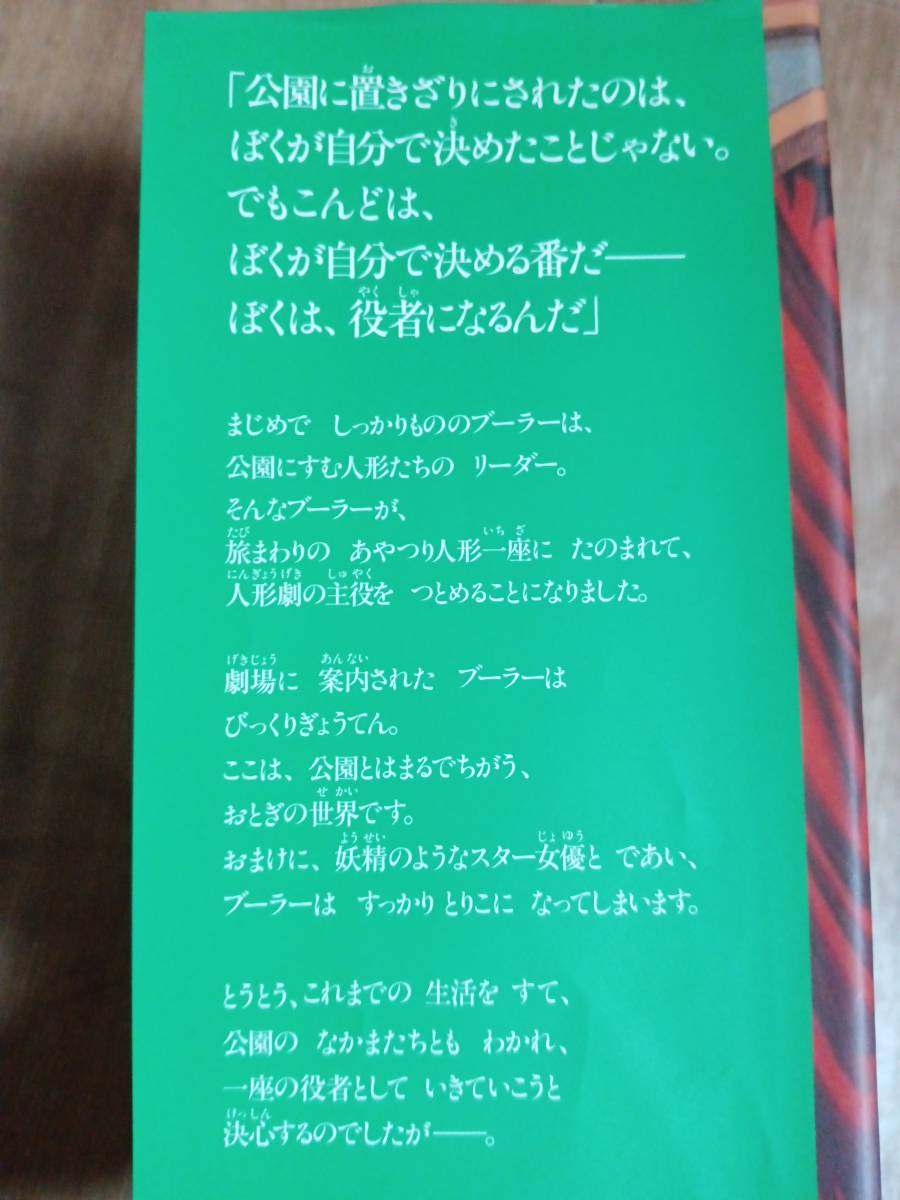 「公園に置きざりにされたのは、
ぼくが自分で決めたことじゃない。
でもこんどは、
ぼくが自分で決める番だ——
ぼくは、役者になるんだ」
まじめで　しっかりもののブーラーは、
公園にすむ人形たちの　リーダー。
そんなブーラーが、
旅まわりの　あやつり人形一座に　たのまれて、
人形劇の主役を　つとめることになりました。
劇場に　案内された　ブーラーは
びっくりぎょうてん。
ここは、公園とはまるでちがう、
おとぎの世界です。
おまけに、妖精のようなスター女優と　であい、
ブーラーは　すっかり とりこに　なってしまいます。
とうとう、これまでの　生活を　すて、
公園の　なかまたちとも　わかれ、
一座の役者として　いきていこうと
決心するのでしたが——。